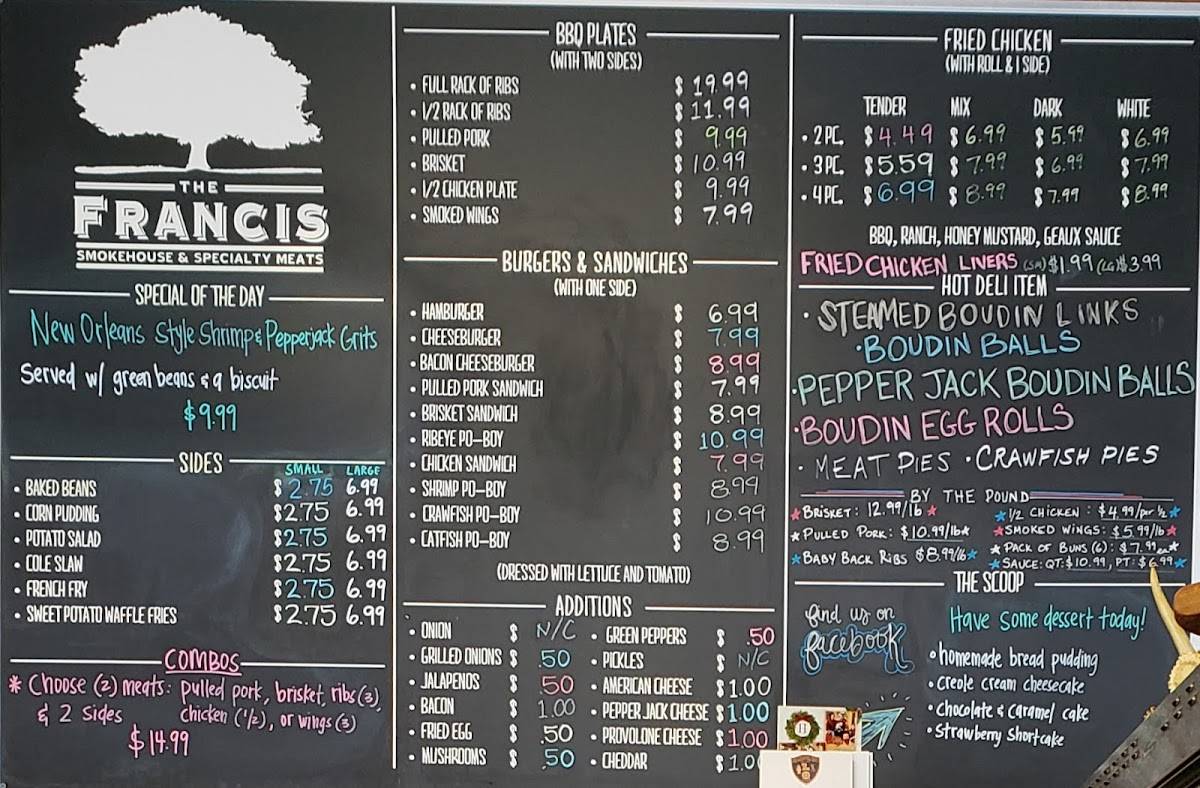 THE
FRANCIS
SMOKEHOUSE & SPECIALTY MEATS
SPECIAL OF THE DAY
New Orleans Style Shrimp & Pepperjack Grits
Served w/ green beans & a biscuit
$9.99
SIDES
SMALL LARGE
• BAKED BEANS $2.75 6.99
• CORN PUDDING $2.75 6.99
• POTATO SALAD $2.75 6.99
• COLE SLAW $2.75 6.99
• FRENCH FRY $2.75 6.99
• SWEET POTATO WAFFLE FRIES $2.75 6.99
COMBOS
* Choose (2) meats: pulled pork, brisket, ribs (3),
& 2 sides chicken (1/2), or wings (3)
$14.99
BBQ PLATES
(WITH TWO SIDES)
• FULL RACK OF RIBS $ 19.99
• 1/2 RACK OF RIBS $ 11.99
• PULLED PORK $ 9.99
• BRISKET $ 10.99
• 1/2 CHICKEN PLATE $ 9.99
• SMOKED WINGS $ 7.99
BURGERS & SANDWICHES
(WITH ONE SIDE)
• HAMBURGER $ 6.99
• CHEESEBURGER $ 7.99
• BACON CHEESEBURGER $ 8.99
• PULLED PORK SANDWICH $ 7.99
• BRISKET SANDWICH $ 8.99
• RIBEYE PO-BOY $ 10.99
• CHICKEN SANDWICH $ 7.99
• SHRIMP PO-BOY $ 8.99
• CRAWFISH PO-BOY $ 10.99
• CATFISH PO-BOY $ 8.99
(DRESSED WITH LETTUCE AND TOMATO)
ADDITIONS
• ONION $ N/C
• GRILLED ONIONS $ .50
• JALAPENOS $ .50
• BACON $ 1.00
• FRIED EGG $ .50
• MUSHROOMS $ .50
• GREEN PEPPERS $ .50
• PICKLES $ N/C
• AMERICAN CHEESE $1.00
• PEPPER JACK CHEESE $1.00
• PROVOLONE CHEESE $1.00
• CHEDDAR $1.0
FRIED CHICKEN
(WITH ROLL & 1 SIDE)
TENDER MIX DARK WHITE
• 2PC. $4.49 $6.99 $5.99 $6.99
• 3PC. $5.59 $7.99 $6.99 $7.99
• 4PC. $6.99 $8.99 $7.99 $8.99
BBQ, RANCH, HONEY MUSTARD, GEAUX SAUCE
FRIED CHICKEN LIVERS (SM)$1.99 (LG)$3.99
HOT DELI ITEM
• STEAMED BOUDIN LINKS
• BOUDIN BALLS
• PEPPER JACK BOUDIN BALLS
• BOUDIN EGG ROLLS
• MEAT PIES • CRAWFISH PIES
BY THE POUND
* BRISKET: 12.99/lb *
* PULLED PORK: $10.99/lb *
* BABY BACK RIBS $8.99/lb *
* 1/2 CHICKEN: $4.99/per 1/2 *
* SMOKED WINGS: $5.99/lb *
* PACK OF BUNS (6): $7.99 ea *
* SAUCE: QT: $10.99, PT: $6.99 *
THE SCOOP
find us on
facebook
Have some dessert today!
• homemade bread pudding
• creole cream cheesecake
• chocolate & caramel cake
• Strawberry Shortcake